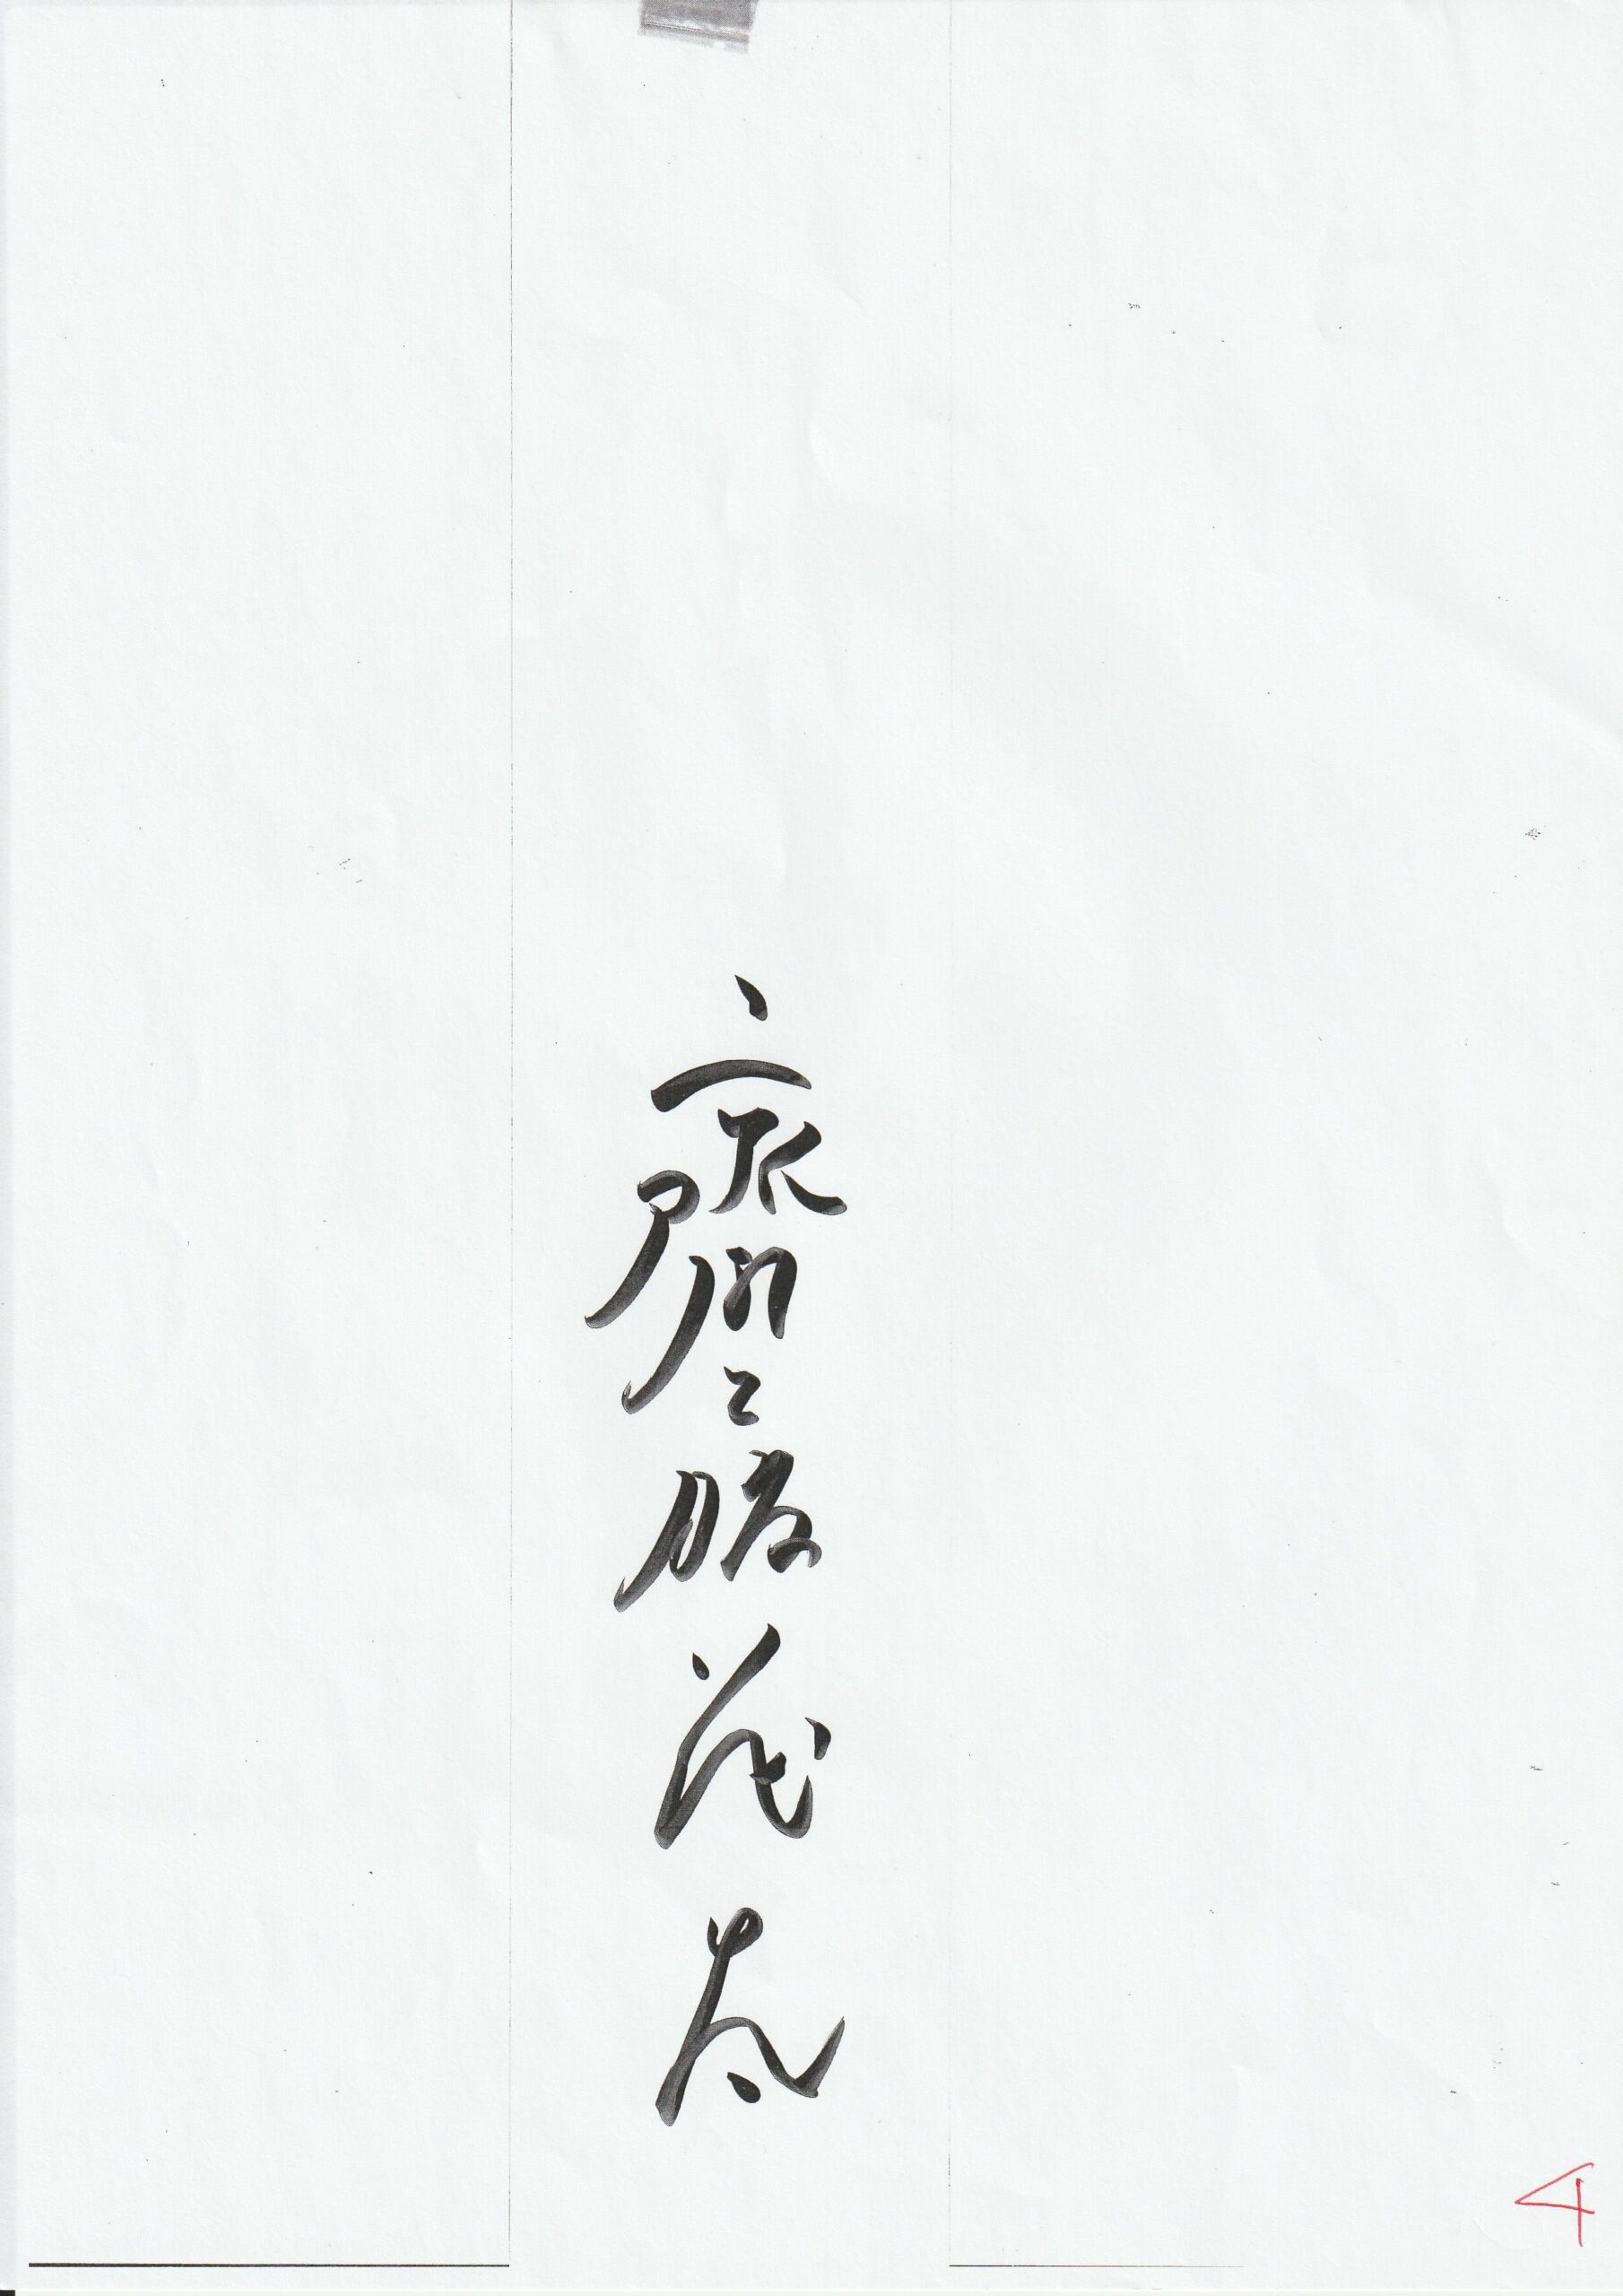 齋藤茂太
4